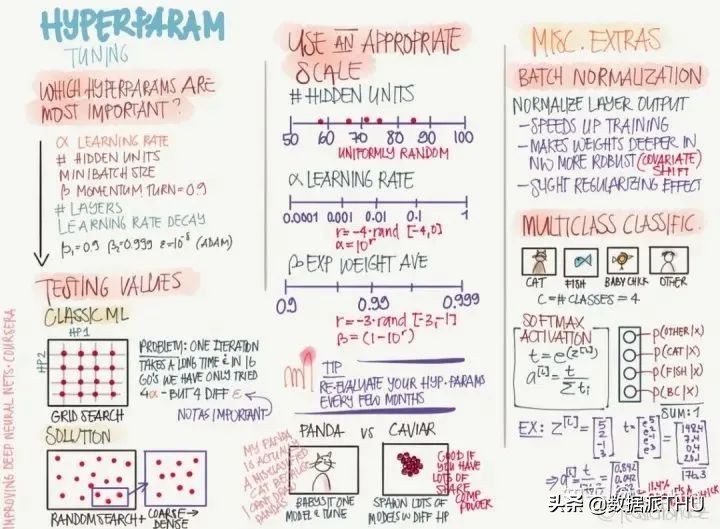 HYPERPARAM
TUNING
WHICH HYPERPARAMS ARE
MOST IMPORTANT?
α LEARNING RATE
# HIDDEN UNITS
MINIBATCH SIZE
β MOMENTUM TURN = 0.9
# LAYERS
LEARNING RATE DECAY
β₁=0.9 β₂=0.999 ε=10⁻⁸ (ADAM)
TESTING VALUES
CLASSIC ML
HP1
HP2
PROBLEM: ONE ITERATION
TAKES A LONG TIME & IN 16
GO'S WE HAVE ONLY TRIED
4α - BUT 4 DIFF ε
NOT AS IMPORTANT
GRID SEARCH
SOLUTION
RANDOM SEARCH +
COARSE→
DENSE
IMPROVING DEEP NEURAL NETS · COURSERA
USE AN APPROPRIATE
SCALE
# HIDDEN UNITS
50 60 70 80 90 100
UNIFORMLY RANDOM
α LEARNING RATE
0.0001 0.001 0.01 0.1 1
r=-4*rand [-4,0]
α=10ʳ
β EXP WEIGHT AVE
0.9 0.99 0.999
r=-3*rand [-3,-1]
β=(1-10ʳ)
TIP
RE-EVALUATE YOUR HYP.PARAMS
EVERY FEW MONTHS
PANDA VS CAVIAR
MY PANDA
IS ACTUALLY
A
CAT
BABYSIT ONE
MODEL & TUNE
SPAWN LOTS OF
MODELS W DIFF HP
GOOD IF
YOU HAVE
LOTS OF
SHARE
COMP
POWER
MISC. EXTRAS
BATCH NORMALIZATION
NORMALIZE LAYER OUTPUT
- SPEEDS UP TRAINING
- MAKES WEIGHTS DEEPER IN
NW MORE ROBUST (COVARIATE
SHIFT)
- SLIGHT REGULARIZING EFFECT
MULTICLASS CLASSIFIC.
CAT FISH BABY CHICK OTHER
C = # CLASSES = 4
SOFTMAX
ACTIVATION
t = e^(z^[L])
a^[L] = t / Σtᵢ
P(OTHER|X)
P(CAT|X)
P(FISH|X)
P(BC|X)
SUM: 1
EX: z^[L] = [5 2 -1 3] t = [e⁵ e² e⁻¹ e³] = [148.4 7.4 0.4 20.1]
176.3
0.842
0.042
11.4%
头条 @数据派THU